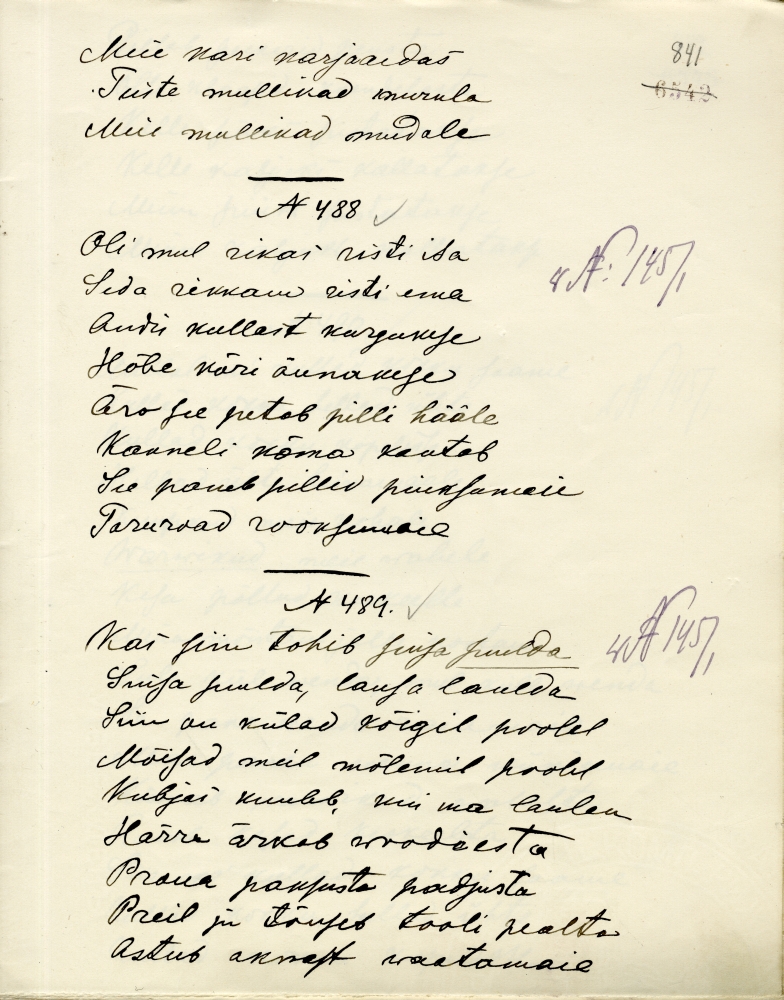 841
6542
Meie kari karjaaedas
Teiste mullikad murula
Meie mullikad mudale
N 488
Oli mul rikas risti isa
Seda rikkam risti ema
Andis kullast kurgukese
Hõbe kõri õunakese
Äro see petab pilli hääle
Kanneli kõma kautab
See paneb pillid piuksumaie
Toruroad rooksumaie
N: 145/1
N 489.
Kas siin tohib sinsa suulda
Sinsa suulda, lausa laulda
Siin on külad kõigil poolel
Mõisad meil mõlemil poolel
Kubjas kuuleb, kui ma laulan
Härra ärkab woodäesta
Proua paksusta padjusta
Preil ju tõuseb tooli pealta
Astub aknast waatamaie
N 145/1